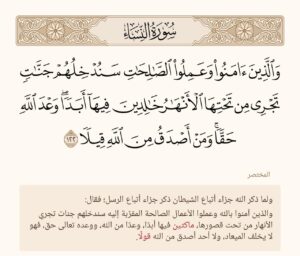 سُورَةُ النِّسَاءِ
وَالَّذِينَ ءَامَنُوا۟ وَعَمِلُوا۟ الصَّٰلِحَٰتِ سَنُدْخِلُهُمْ جَنَّٰتٍ
تَجْرِى مِن تَحْتِهَا الْأَنْهَٰرُ خَٰلِدِينَ فِيهَا أَبَدًا وَعْدَ اللَّهِ
حَقًّا وَمَنْ أَصْدَقُ مِنَ اللَّهِ قِيلًا ١٢٢
المختصر
ولما ذكر الله جزاء أتباع الشيطان ذكر جزاء أتباع الرسل؛ فقال:
والذين آمنوا بالله وعملوا الأعمال الصالحة المقرّبة إليه سندخلهم جنات تجري
الأنهار من تحت قصورها، ماكثين فيها أبدًا، وعدًا من الله، ووعده تعالى حق، فهو
لا يخلف الميعاد، ولا أحد أصدق من الله قولًا.